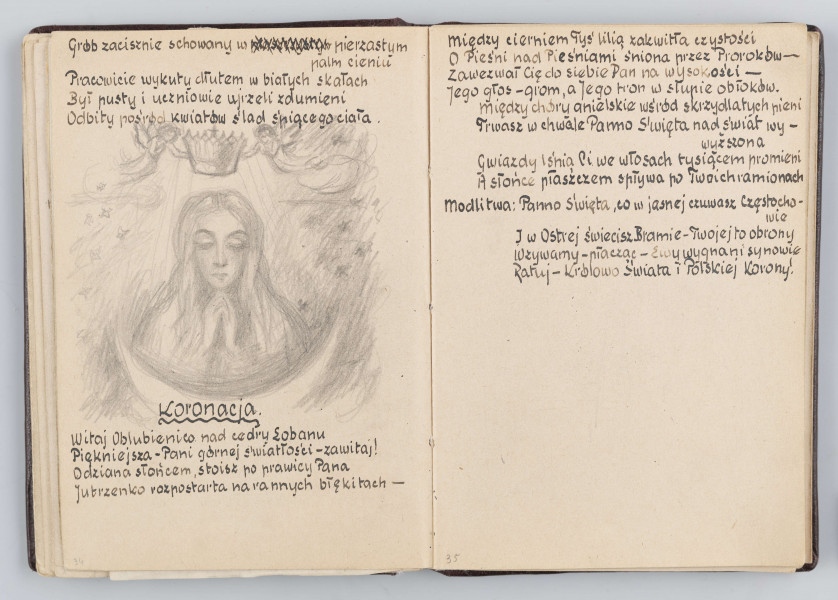 Grób zacisznie schowany w pierzastym
palm cieniu
Pracowicie wykuty dłutem w białych skałach
Był pusty i uczniowie ujrzeli zdumieni
Odbity pośród kwiatów ślad śpiącego ciała.
Koronacja.
Witaj Oblubienico nad cedry Łobanu
Piękniejsza - Pani górnej światłości - zawitaj!
Odziana słońcem, stoisz po prawicy Pana
Jutrzenko rozpostarta na rannych błękitach —
34
między cierniem Tyś lilią zakwitła czystości
O Pieśni nad Pieśniami śniona przez Proroków—
Zawezwał Cię do siebie Pan na wysokości —
Jego głos - grom, a Jego tron w słupie obłoków.
między chóry anielskie wśród skrzydlatych pieni
Trwasz w chwale Panno Święta nad świat wy-
wyższona
Gwiazdy lśnią Ci we włosach tysiącem promieni
A słońce płaszczem spływa po Twoich ramionach
Modlitwa: Panno Święta, co w jasnej czuwasz Częstocho-
wie
I w Ostrej świecisz Bramie - Twojej to obrony
Wzywamy - płacząc - Ewy wygnani synowie
Ratuj - Królowo Świata i Polskiej Korony!
35